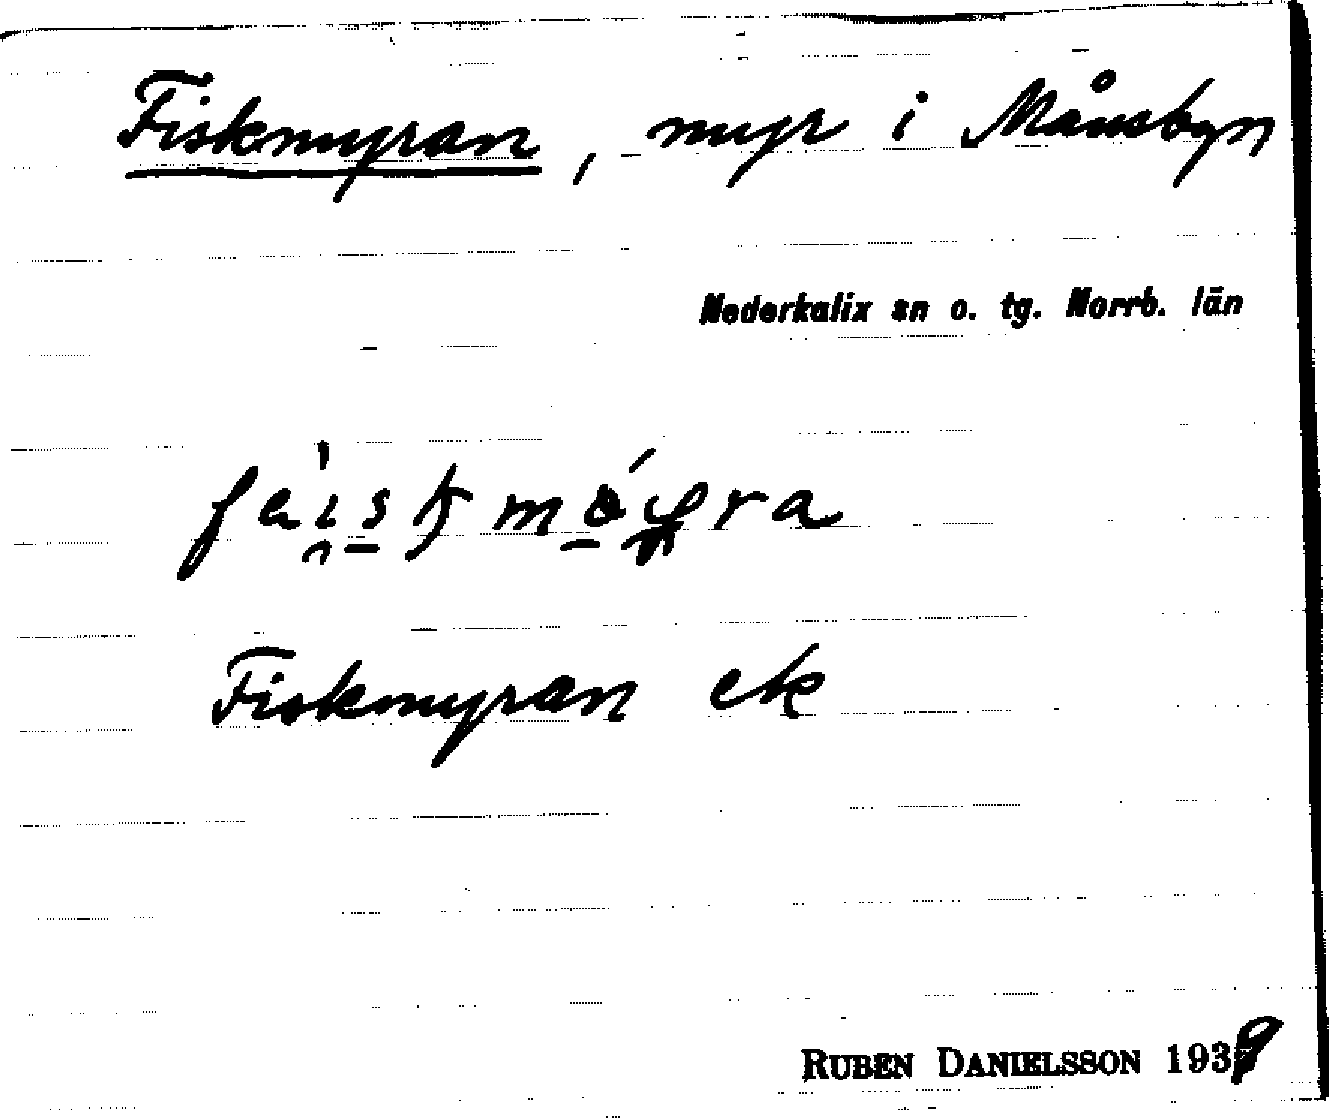 Fiskmyran, myr i Månsbyn
Nederkalix sn o. tg. Norrb. län
Fiskmyran ek
RUBEN DANIELSSON 1939